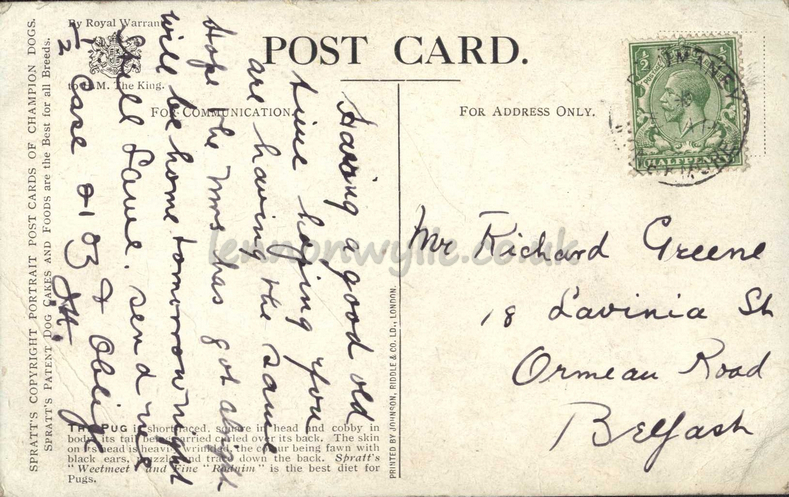 SPRATT'S COPYRIGHT PORTRAIT POST CARDS OF CHAMPION DOGS.
SPRATT'S PATENT DOG CAKES AND FOODS are the Best for all Breeds.
By Royal Warrant
to H.M. The King.
POST CARD.
FOR COMMUNICATION.
FOR ADDRESS ONLY.
HALFPENNY
Having a good old
time hoping you
are having the same
Hope the Mrs has got
will be home tomorrow night
send
1/2 Case & Oblige
J.H.
Mr Richard Greene
18 Lavinia St
Ormeau Road
Belfast
lennonwylie.co.uk
PRINTED BY JOHNSON, RIDDLE & CO. LD., LONDON.
THE PUG is short faced, square in head and cobby in
body, its tail being carried curled over its back. The skin
on its head is heavily wrinkled, the colour being fawn with
black ears, muzzle and trace down the back. Spratt's
"Weetmeet" and Fine "Rodnim" is the best diet for
Pugs.